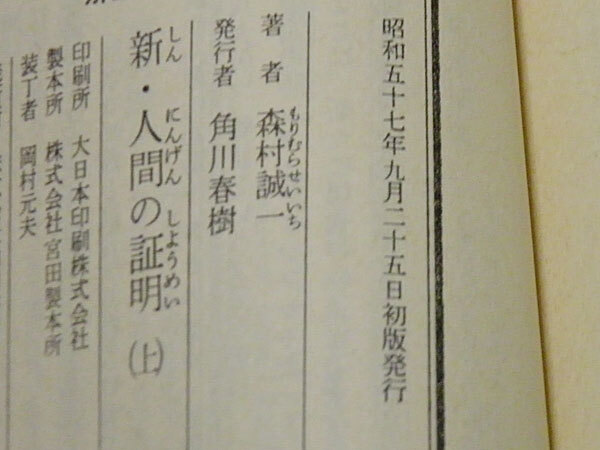 昭和五十七年九月二十五日初版発行
著者 森村誠一
もりむらせいいち
発行者 角川春樹
しん にんげん しようめい
新・人間の証明(上)
印刷所 大日本印刷株式会社
製本所 株式会社宮田製本所
装丁者 岡村元夫